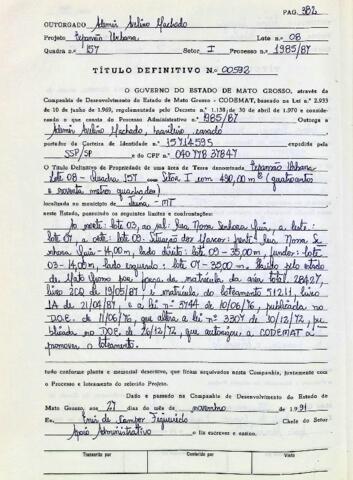 PAG. 382
OUTORGADO Ademir Avelino Machado
Projeto Expansão Urbana Lote n.º 08
Quadra n.º 157 Setor I Processo n.º 1985/87
TÍTULO DEFINITIVO N.º 00592
O GOVERNO DO ESTADO DE MATO GROSSO, através da
Companhia de Desenvolvimento do Estado de Mato Grosso - CODEMAT, baseado na Lei n.º 2.933
de 10 de junho de 1969, regulamentada pelo Decreto n.º 1.138 de 30 de abril de 1970 e considerando
o que consta do Processo Administrativo n.º 1985/87 Outorga a
Ademir Avelino Machado, brasileiro, casado
portador da Carteira de Identidade n.º 15714595 expedida pela
SSP/SP e do CPF n.º 04077837847
O Título Definitivo de Propriedade de uma área de Terra denominada Expansão Urbana
Lote 08 - Quadra 157 Setor I com 490,00 m² (quatrocentos
e noventa metros quadrados)
localizada no município de Juína - MT
neste Estado, passando os seguintes limites e confrontações:
Ao norte: lote 03, ao sul: Rua Nossa Senhora, a leste:
lote 07 a oeste: lote 09. Situação dos Marcos: frente: Rua Nossa Se
nhora - 14,00m, lado direito: lote 09 - 35,00m, fundos: lote
03 - 14,00m, lado esquerdo: lote 07 - 35,00m. pelo estado
de Mato Grosso por força da matrícula da área total 28427,
livro 2CQ de 19/05/81 e matrícula do loteamento 51211, livro
1A de 21/04/87 e a lei nº 3744 de 10/06/76, publicada no
D.O.E. de 11/06/76, que altera a lei nº 3307 de 10/12/72, pu
blicada no D.O.E. de 26/12/72, que autorizou a CODEMAT a
promover o loteamento.
tudo conforme planta e memorial descritivo, que ficam arquivados nesta Companhia, juntamente com
o Processo e loteamento do referido Projeto.
Dado e passado na Companhia de Desenvolvimento do Estado de
Mato Grosso, aos 27 dias do mês de novembro de 1991
Eu, Enir de Campos Figueiredo Chefe do Setor
Apoio Administrativo o fiz escrever e assino.
Transcrito por Conferido por Visto